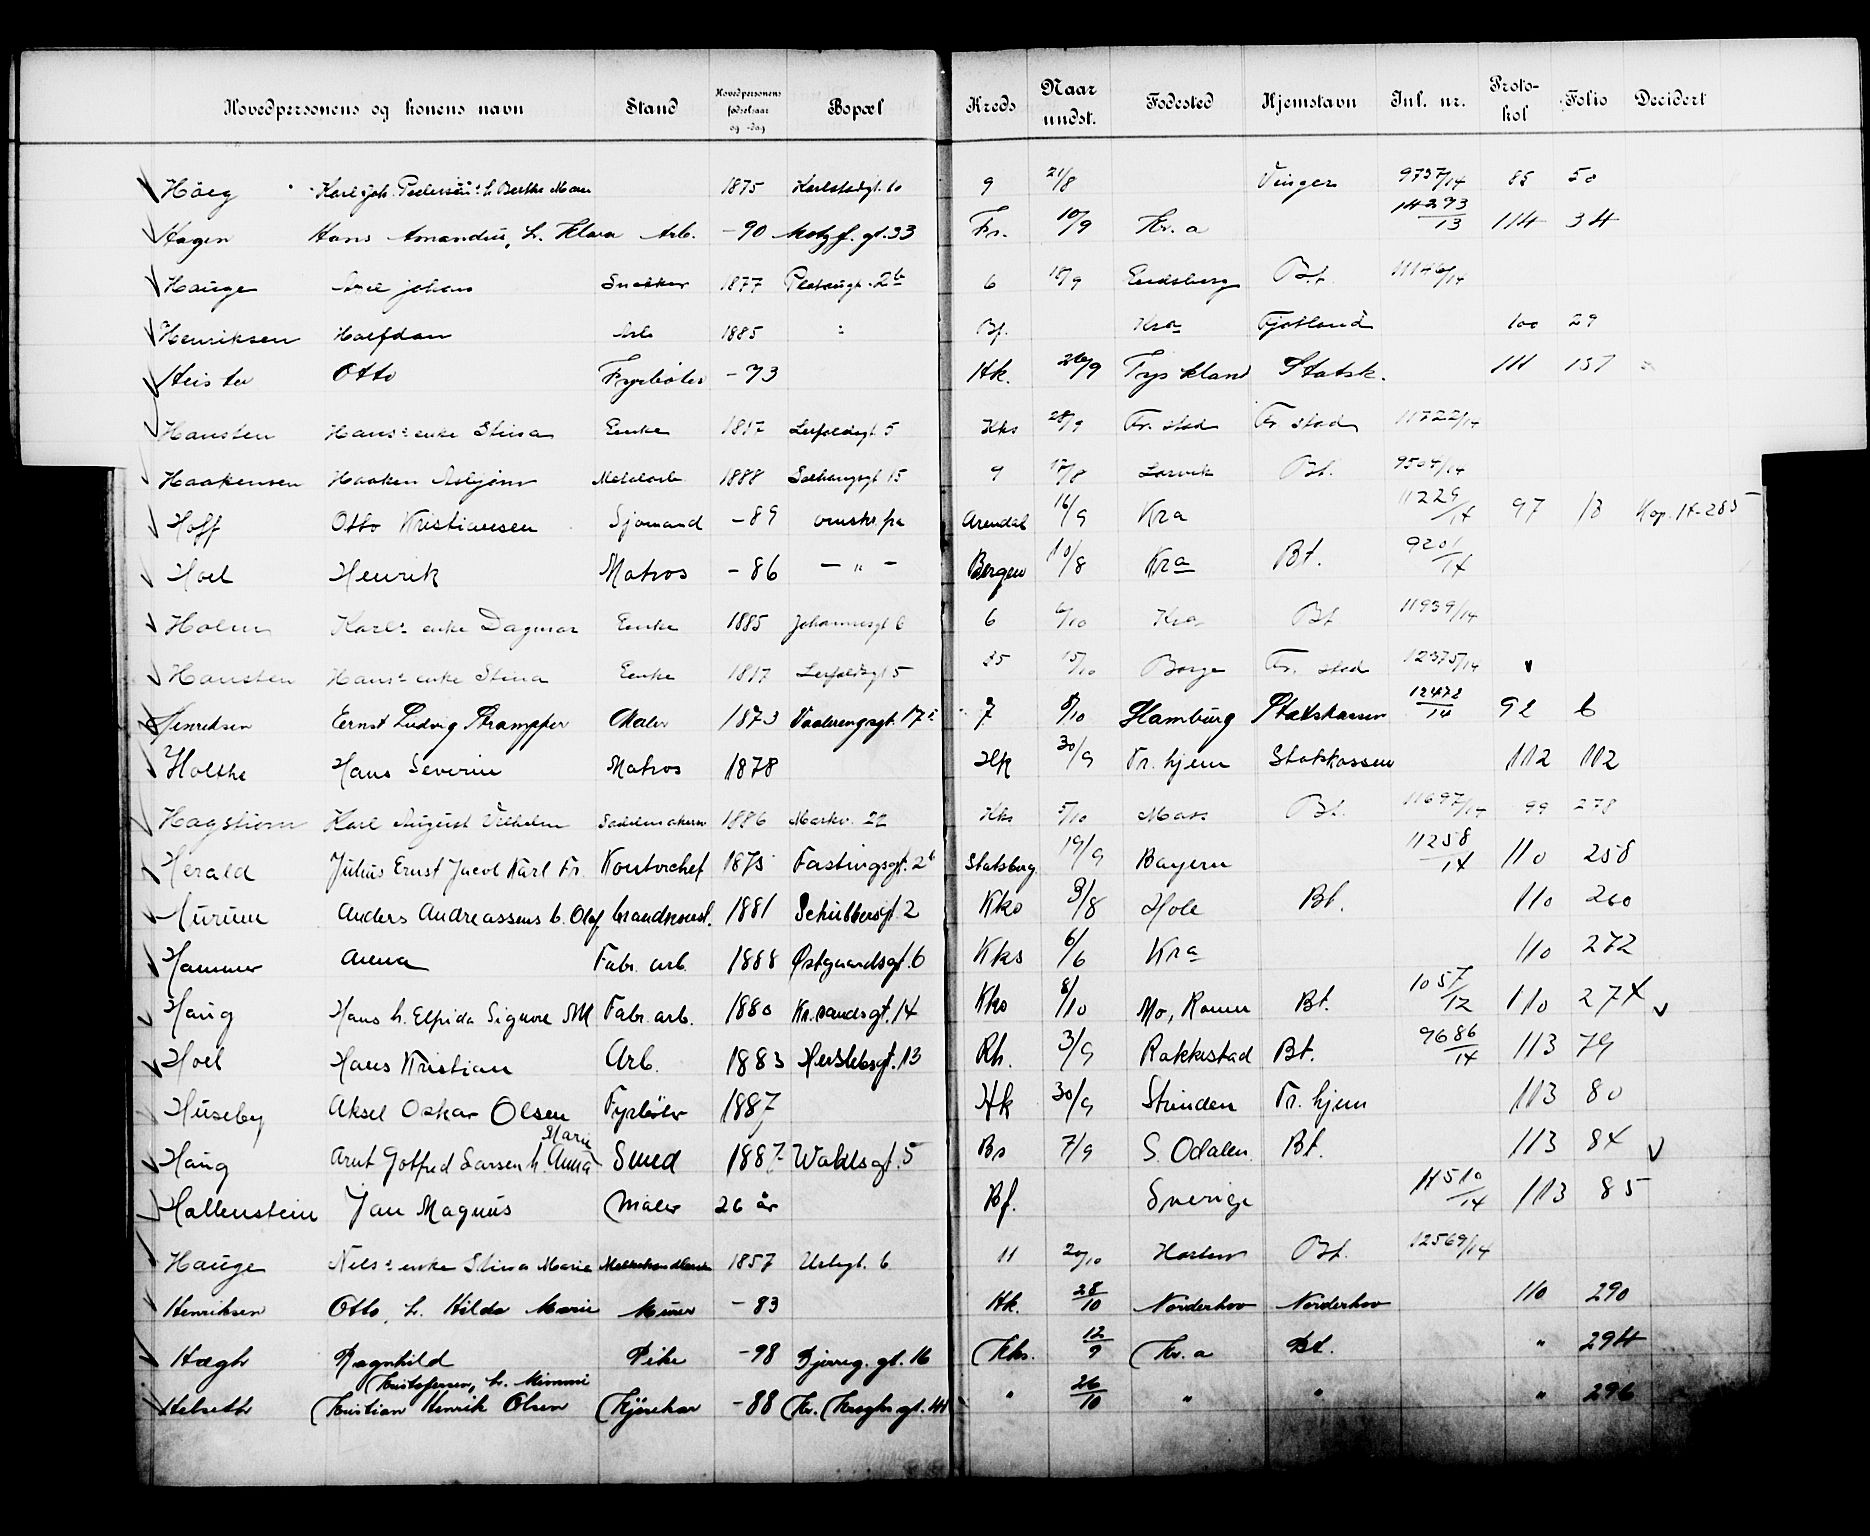 Hovedpersonens og konens navn Stand Hovedpersonens fødselsaar og -dag Bopæl Kreds Naar undst. Fødested Hjemstavn Inl. nr. Protokol Folio Decidert
Höeg Karl Joh. Pedersen h. Berthe 1875 Karlstadgt. 10 9 21/8 Vinger 9737/14 85 50
Hagen Hans Amandus, h. Klara Arb. -90 Motzf. gt. 33 Fr. 10/9 Kr.a 14293/13 114 34
Hauge Johan Snekker 1877 2b 6 15/9 Eidsberg Bt. 11146/14
Henriksen Halfdan Arb 1885 Bf. Kra Fjotland 100 29
Heister Otto Fyrbøter -73 Hk. 26/9 Tyskland Statsk. 111 157
Hansten Hans enke Stina Enke 1817 Leirfaldsgt 5 Kks 28/9 Fr. stad Fr stad 11722/14
Haakensen Haaken Asbjørn Metalarb 1888 15 9 17/8 Larvik Bt. 9504/14
Hoff Otto Kristiansen Sjømand -89 omstr. pr Arendal 16/9 Kra 11229/14 97 13 Kop. 14-285
Hoel Henrik Matros -86 - " - Bergen 10/8 Kra Bt. 9201/14
Holm Karls enke Dagmar Enke 1885 Johannesgt 6 6 6/10 Kra Bt 11939/14
Hansten Hans enke Stina Enke 1817 Leirfaldsgt 5 35 15/10 Borge Fr. stad 12375/14
Henriksen Ernst Ludvig Strampfer Maler 1873 Vaalerengsgt. 17 7 8/10 Hamburg Statskassen 12472/14 92 6
Holthe Hans Severin Matros 1878 Hk 30/9 Tr. hjem Statskassen 112 112
Hagstrøm Karl August Vilhelm Sadelmakersv 1886 Markv. 22 Kks 5/10 Moss Bt. 11697/14 99 278
Herald Julius Ernst Jacob Karl Fr. Kontorchef 1875 Fastingsgt. 2b Statsberg 19/9 Bayern 11258/14 110 258
Hurum Anders Andreassens h. Olaf brandkonst. 1881 Schübbersgt. 2 Kks 3/8 Hole Bt. 110 260
Hammer Anna Fabr. arb. 1888 Østgaardsgt. 6 Kks 6/6 Kra 110 272
Haug Hans h. Elfrida Signore M Fabr. arb. 1880 Kr.sandsgt. 14 Kks 8/10 Mo, Romer Bt. 1057/12 110 274
Hoel Hans Kristian Arb. 1883 Herslebsgt. 13 Rh. 3/9 Rakkestad Bt. 9686/14 113 79
Huseby Aksel Oskar Olsen Fyrbøter 1887 Hk 30/9 Strinden Tr. hjem 113 80
Haug Arnt Gotfred Larsen h. Anna Marie Smed 1887 Waldsgt. 5 Bs 7/9 S. Odalen Bt. 113 84
Hallenstein Jan Magnus Maler 26 år Bf. Sverige 14510/14 113 85
Hauge Nils enke Stina Marie Melkehandlerske 1857 Urtegt. 6 11 20/10 Horten Bt. 12569/14
Henriksen Otto, h. Hilda Marie Murer -83 Hk. 28/10 Norderhov Norderhov 110 290
Høgh Ragnhild Pike -98 Bjerreg. gt. 16 Kks. 12/9 Kr.a Bt. " 294
Kristofersen, h. Mimmi
Helseth Kristian Henrik Olsen Kjørekar -88 Kr. Kroghs gt. 44 " 26/10 " " " 296